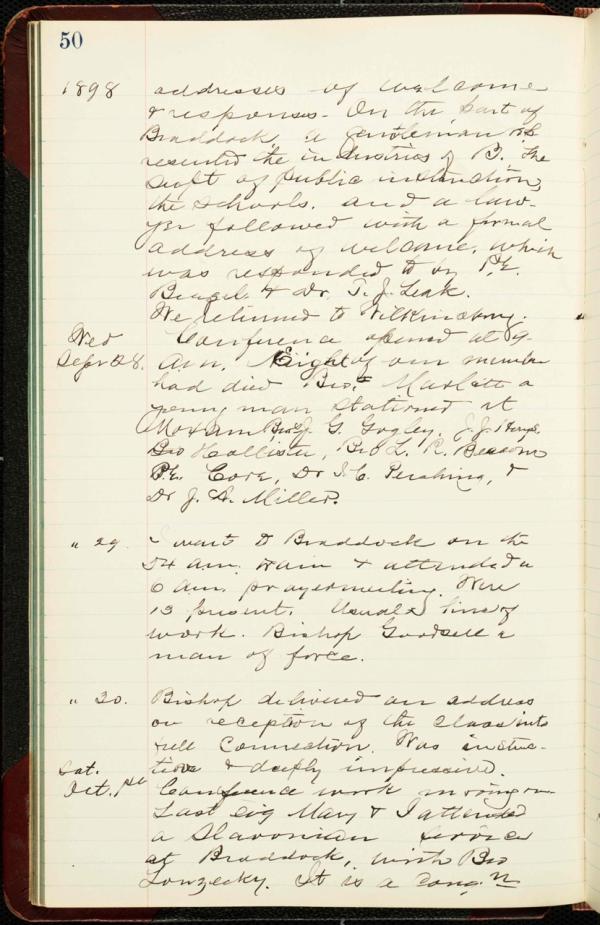 50
1898 addresses of welcome
& responses. On the part of
Braddock, a gentleman rep
resented the industries of B. the
Supt of public instruction,
the schools, and a law-
yer followed with a formal
address of welcome, which
was responded to by P.E.
& Dr. T. J. Leak.
We returned to Wilkinsburg.
Wed Conference opened at 9
Sept 28. a.m. Eight of our membe
had died Bro. a
young man stationed at
Moxam Bro J. G. Gogley, J. J. Hays
Bro Hollister, Bro L. R. Beacom
P.E. Core, Dr I. C. Pershing, &
Dr J. A. Miller.
" 29. I went to Braddock on the
54 am. train & attended a
6 am. prayermeeting. Were
13 present. Usual line of
work. Bishop Goodsell a
man of force.
" 30. Bishop delivered an address
on reception of the class into
full Connection. Was instruc-
tive & deeply impressive.
Sat.
Oct. 1st Conference work moving on
Last eig Mary & I attended
a Slavonian service
at Braddock, with Bro
It is a cong.n